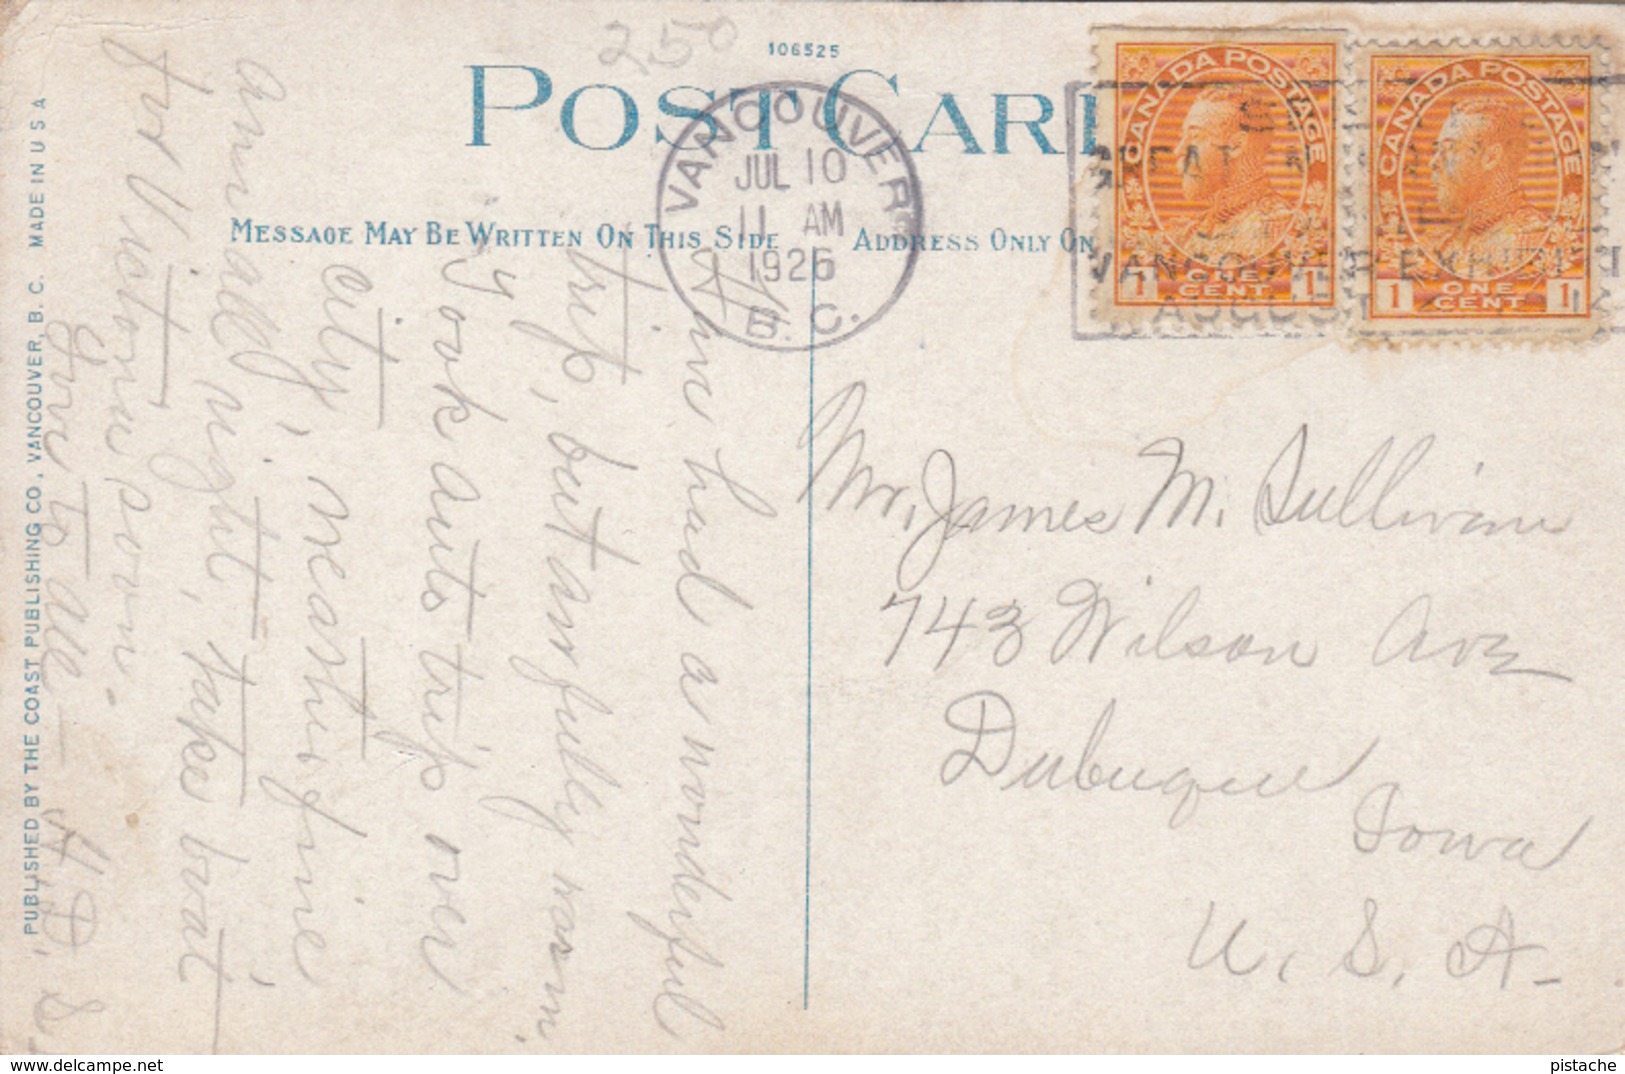 106525
250
POST CARD
VANCOUVER
JUL 10
11 AM
1926
B. C.
CANADA POSTAGE
1 ONE CENT 1
CANADA POSTAGE
1 ONE CENT 1
GREAT
VANCOUVER EXHIBI
AUGUST
MESSAGE MAY BE WRITTEN ON THIS SIDE
ADDRESS ONLY ON
have had a wonderful
trip, but awfully warm.
Took auto trip over
city, weather fine
arrived
all night, take boat
for Victoria soon.
Love to all —
H. D. S.
Mr. James M. Sullivan
743 Wilson Ave
Dubuque
Iowa
U. S. A.
PUBLISHED BY THE COAST PUBLISHING CO., VANCOUVER, B. C. MADE IN U S A
www.delcampe.net
pistache